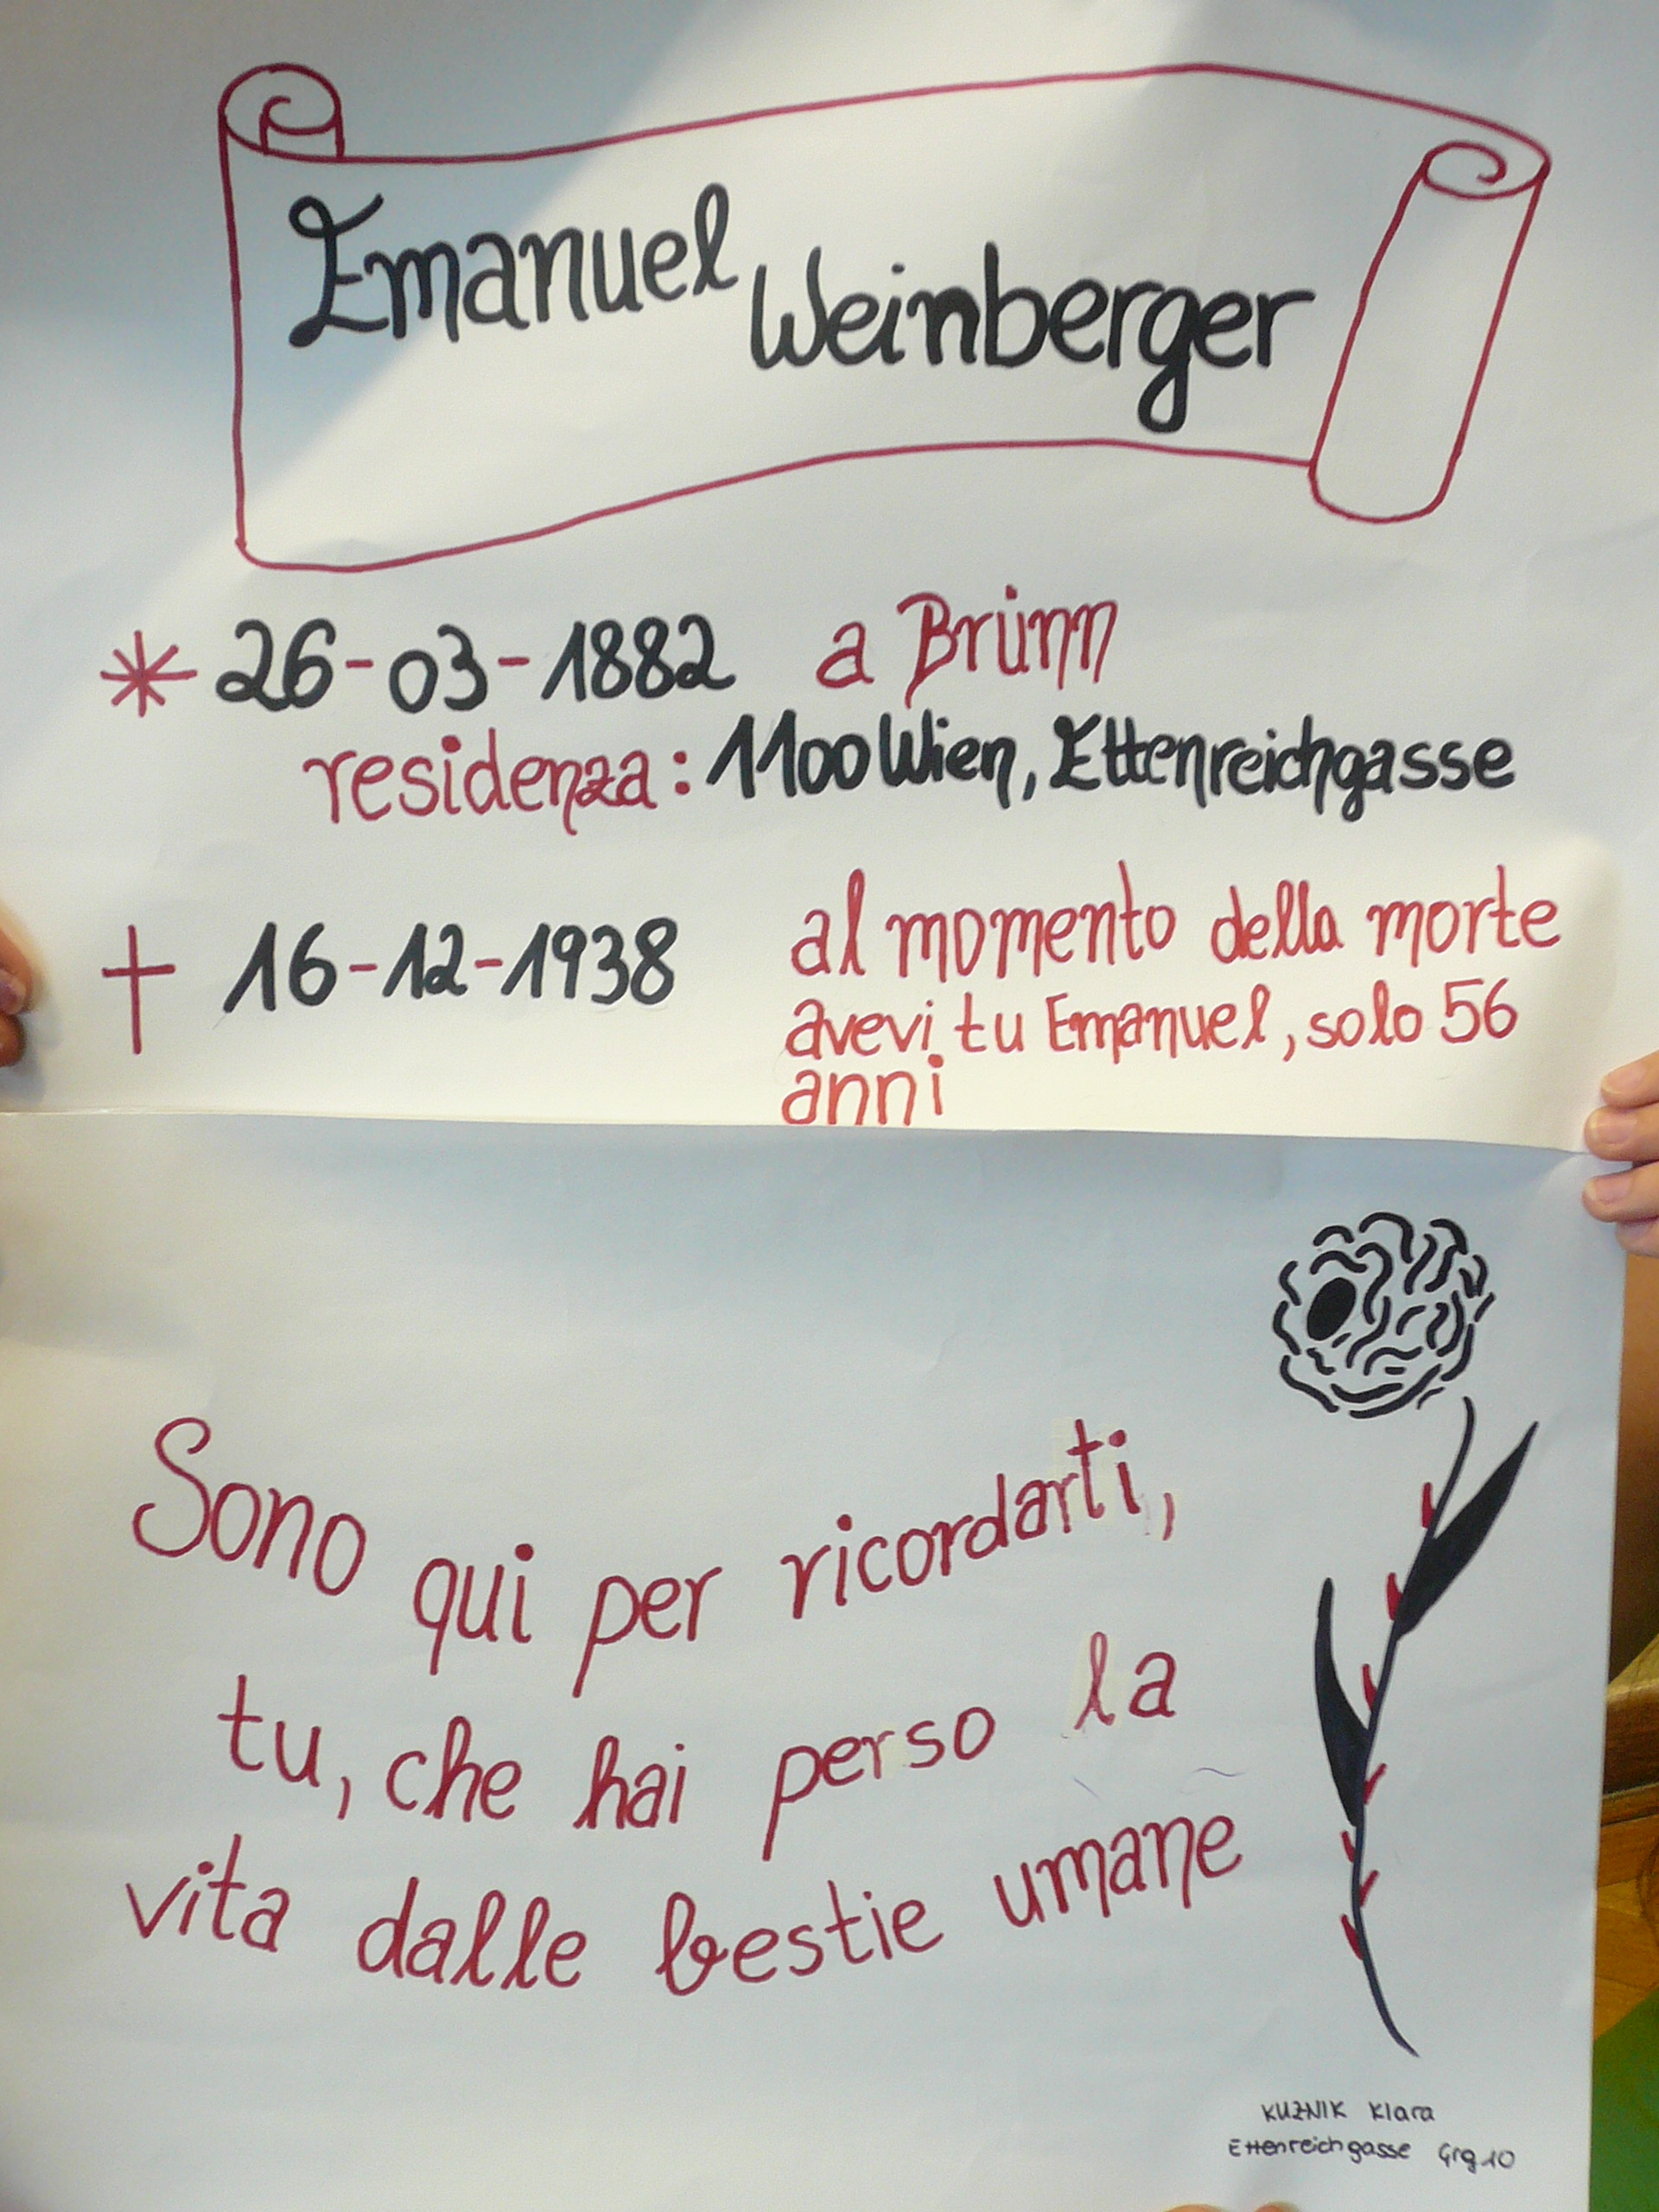 Emanuel Weinberger
* 26-03-1882 a Brünn
residenza: 1100 Wien, Ettenreichgasse
† 16-12-1938 al momento della morte
avevi tu Emanuel, solo 56
anni
Sono qui per ricordarti,
tu, che hai perso la
vita dalle bestie umane
KUZNIK Klara
Ettenreichgasse Grg 10